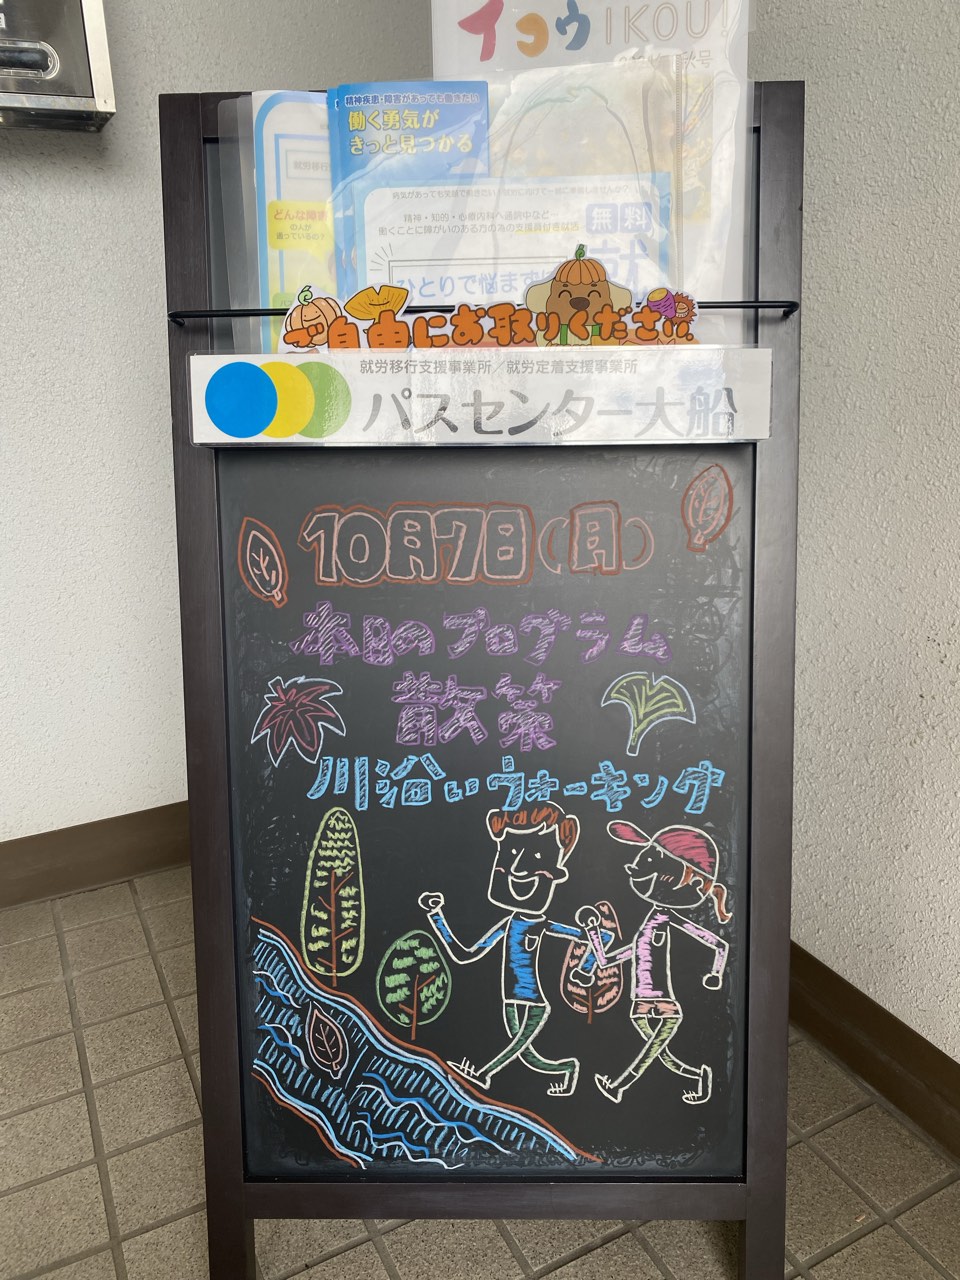 イコウIKOU!
秋号
精神疾患・障害があっても働きたい
働く勇気が
きっと見つかる
就労移行
どんな障害
の人が
通っているの?
精神・知的・心療内科へ通院中など…
働くことに障がいのある方の為の支援員付き
無料
ひとりで悩まず
ご自由にお取りください
就労移行支援事業所/就労定着支援事業所
パスセンター大船
10月7日(月)
本日のプログラム
散策
川沿いウォーキング